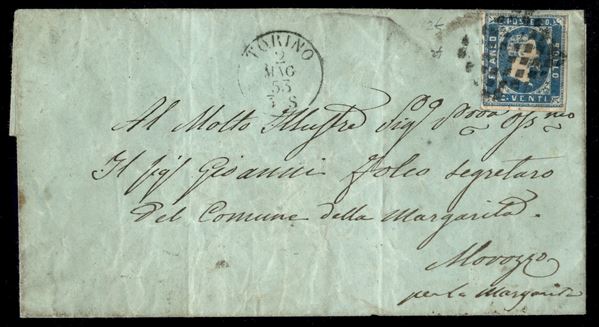 TORINO
2
MAG
53
S
C. POSTE 20.
FRANCO
BOLLO
C. VENTI
Al Molto Illustre Sig.
Il Sig. Giovanni Folco segretaro
Del Comune della Margarita.
Morozzo
per la Margarita